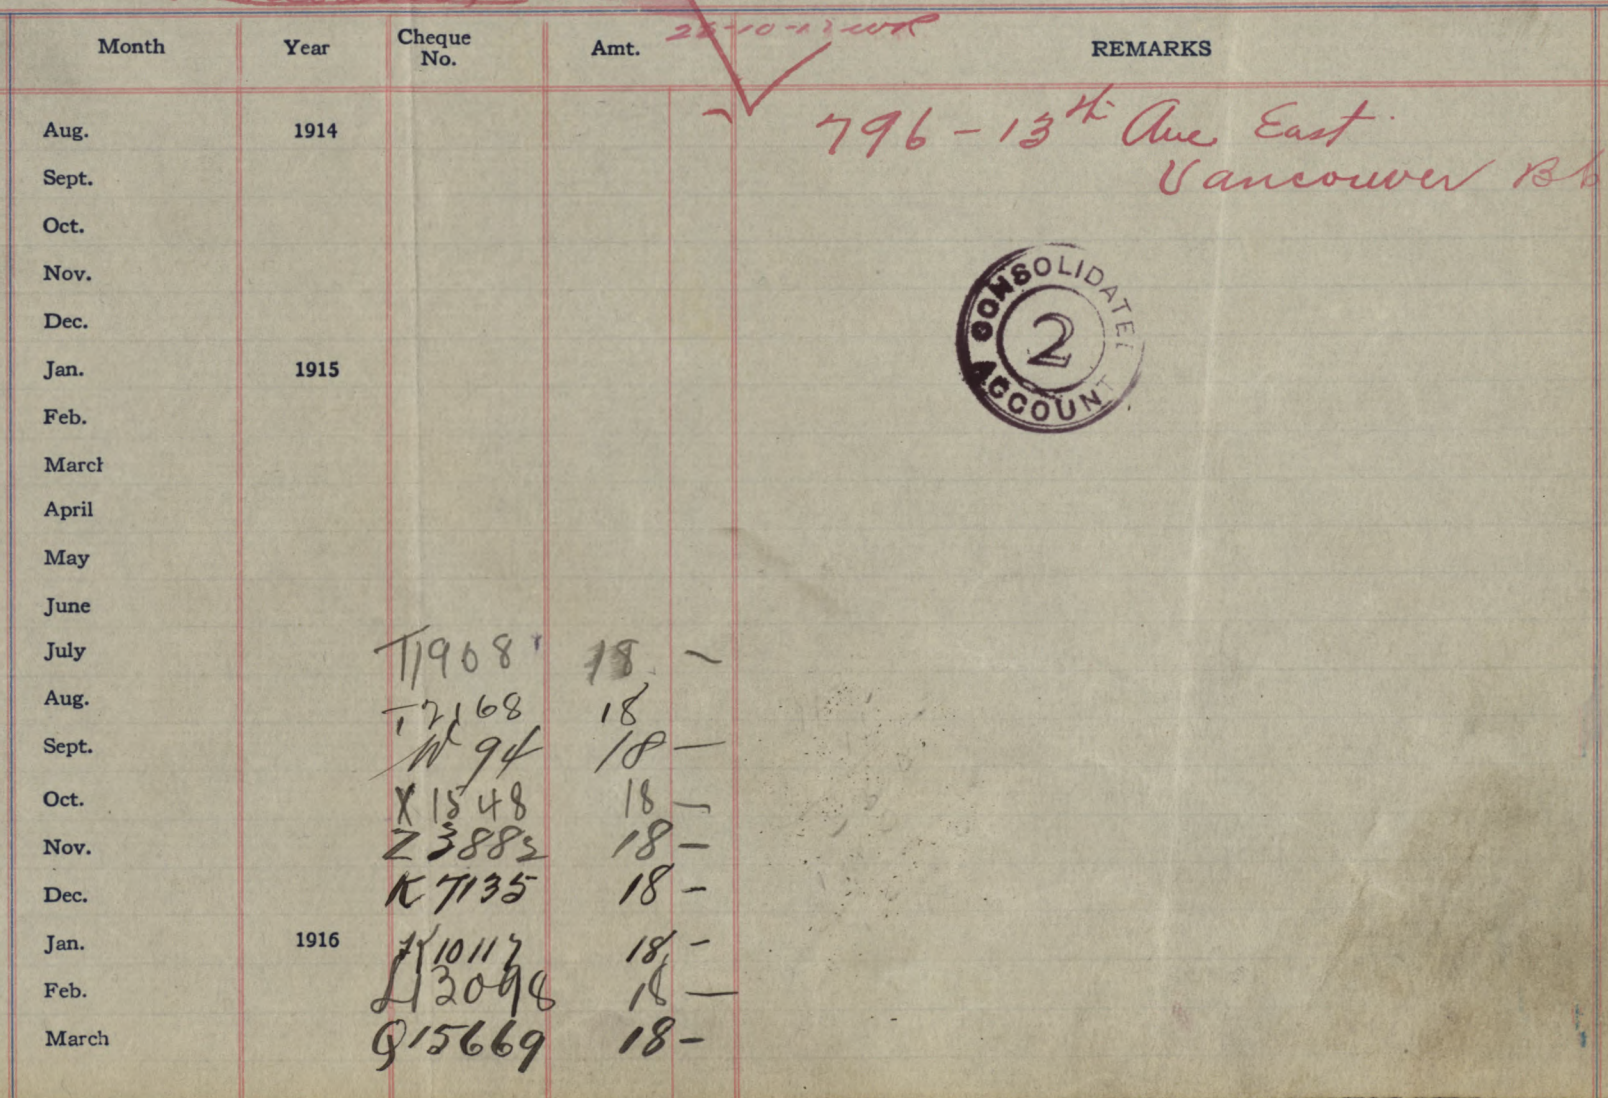 Month Year Cheque No. Amt. REMARKS
Aug. 1914 796 - 13th Ave East
Sept. Vancouver BC
Oct.
Nov.
Dec.
CONSOLIDATED ACCOUNT 2
Jan. 1915
Feb.
March
April
May
June
July T1908 18 —
Aug. T2168 18
Sept. W 94 18 —
Oct. X1548 18 —
Nov. Z3882 18 —
Dec. K7135 18 —
Jan. 1916 K10117 18 —
Feb. L13098 18 —
March Q15669 18 —